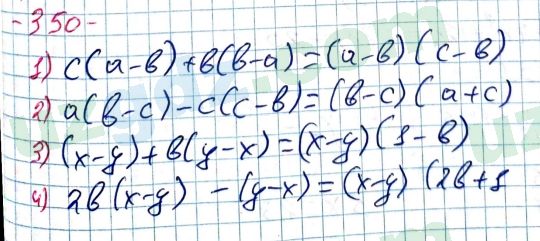 -350-
1) c(a-b)+b(b-a)=(a-b)(c-b)
2) a(b-c)-c(c-b)=(b-c)(a+c)
3) (x-y)+b(y-x)=(x-y)(1-b)
4) 2b(x-y) -(y-x)=(x-y)(2b+1